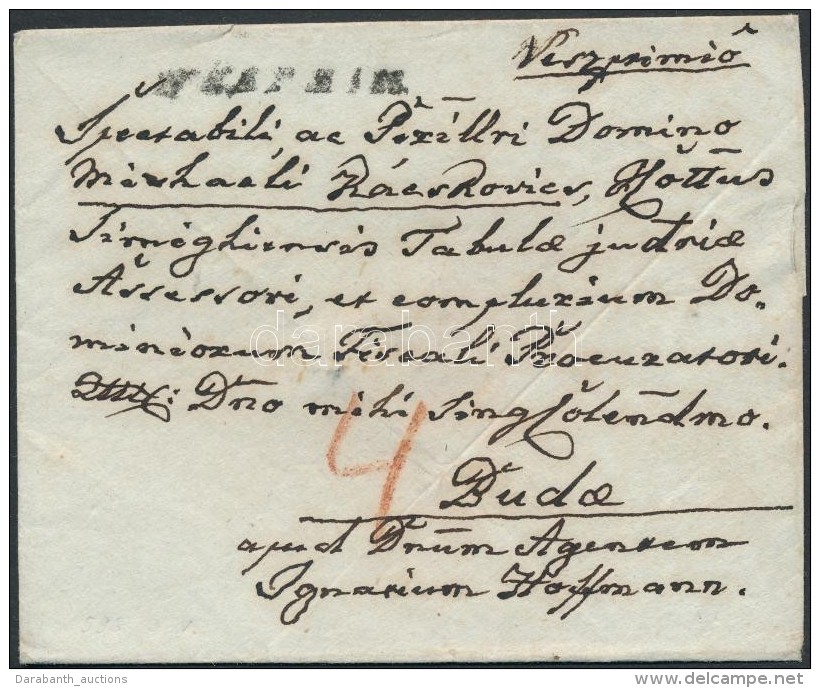 Veszprimiö
WESPRIM
Spectabili, ac Perillri Domino
Michaeli Rácskovics, Ittus
Simeghiensis Tabulae judriae
Assessori, et complurium Do-
miniorum Fiscali Procuratori.
Dno mihi Singlolendmo.
4
Budae
apud Dnum Agentem
Ignatium Hoffmann.
darabanth
Darabanth_auctions
www.delcampe.net